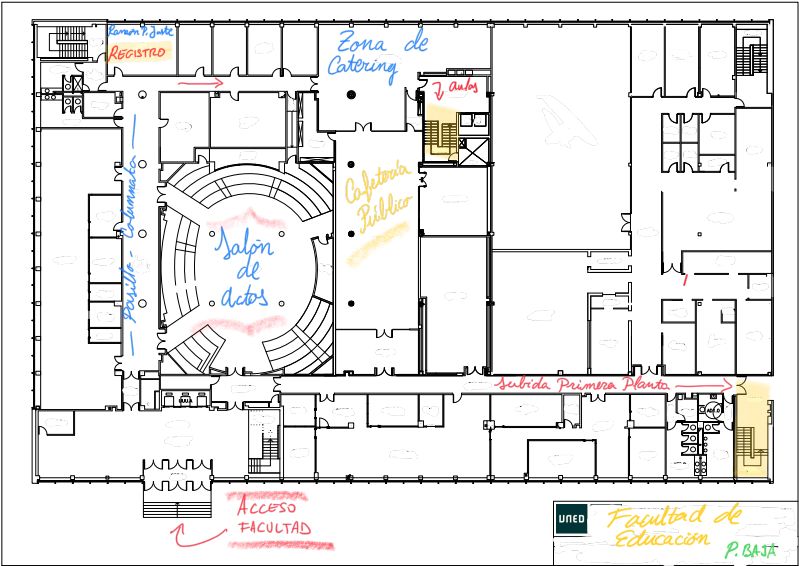 Ramón P. Juste
REGISTRO
Zona de
Catering
aulas
Pasillo - Columnata
Cafetería
Público
Salón
de
actos
Subida Primera Planta
ACCESO
FACULTAD
UNED
Facultad de
Educación
P. BAJA